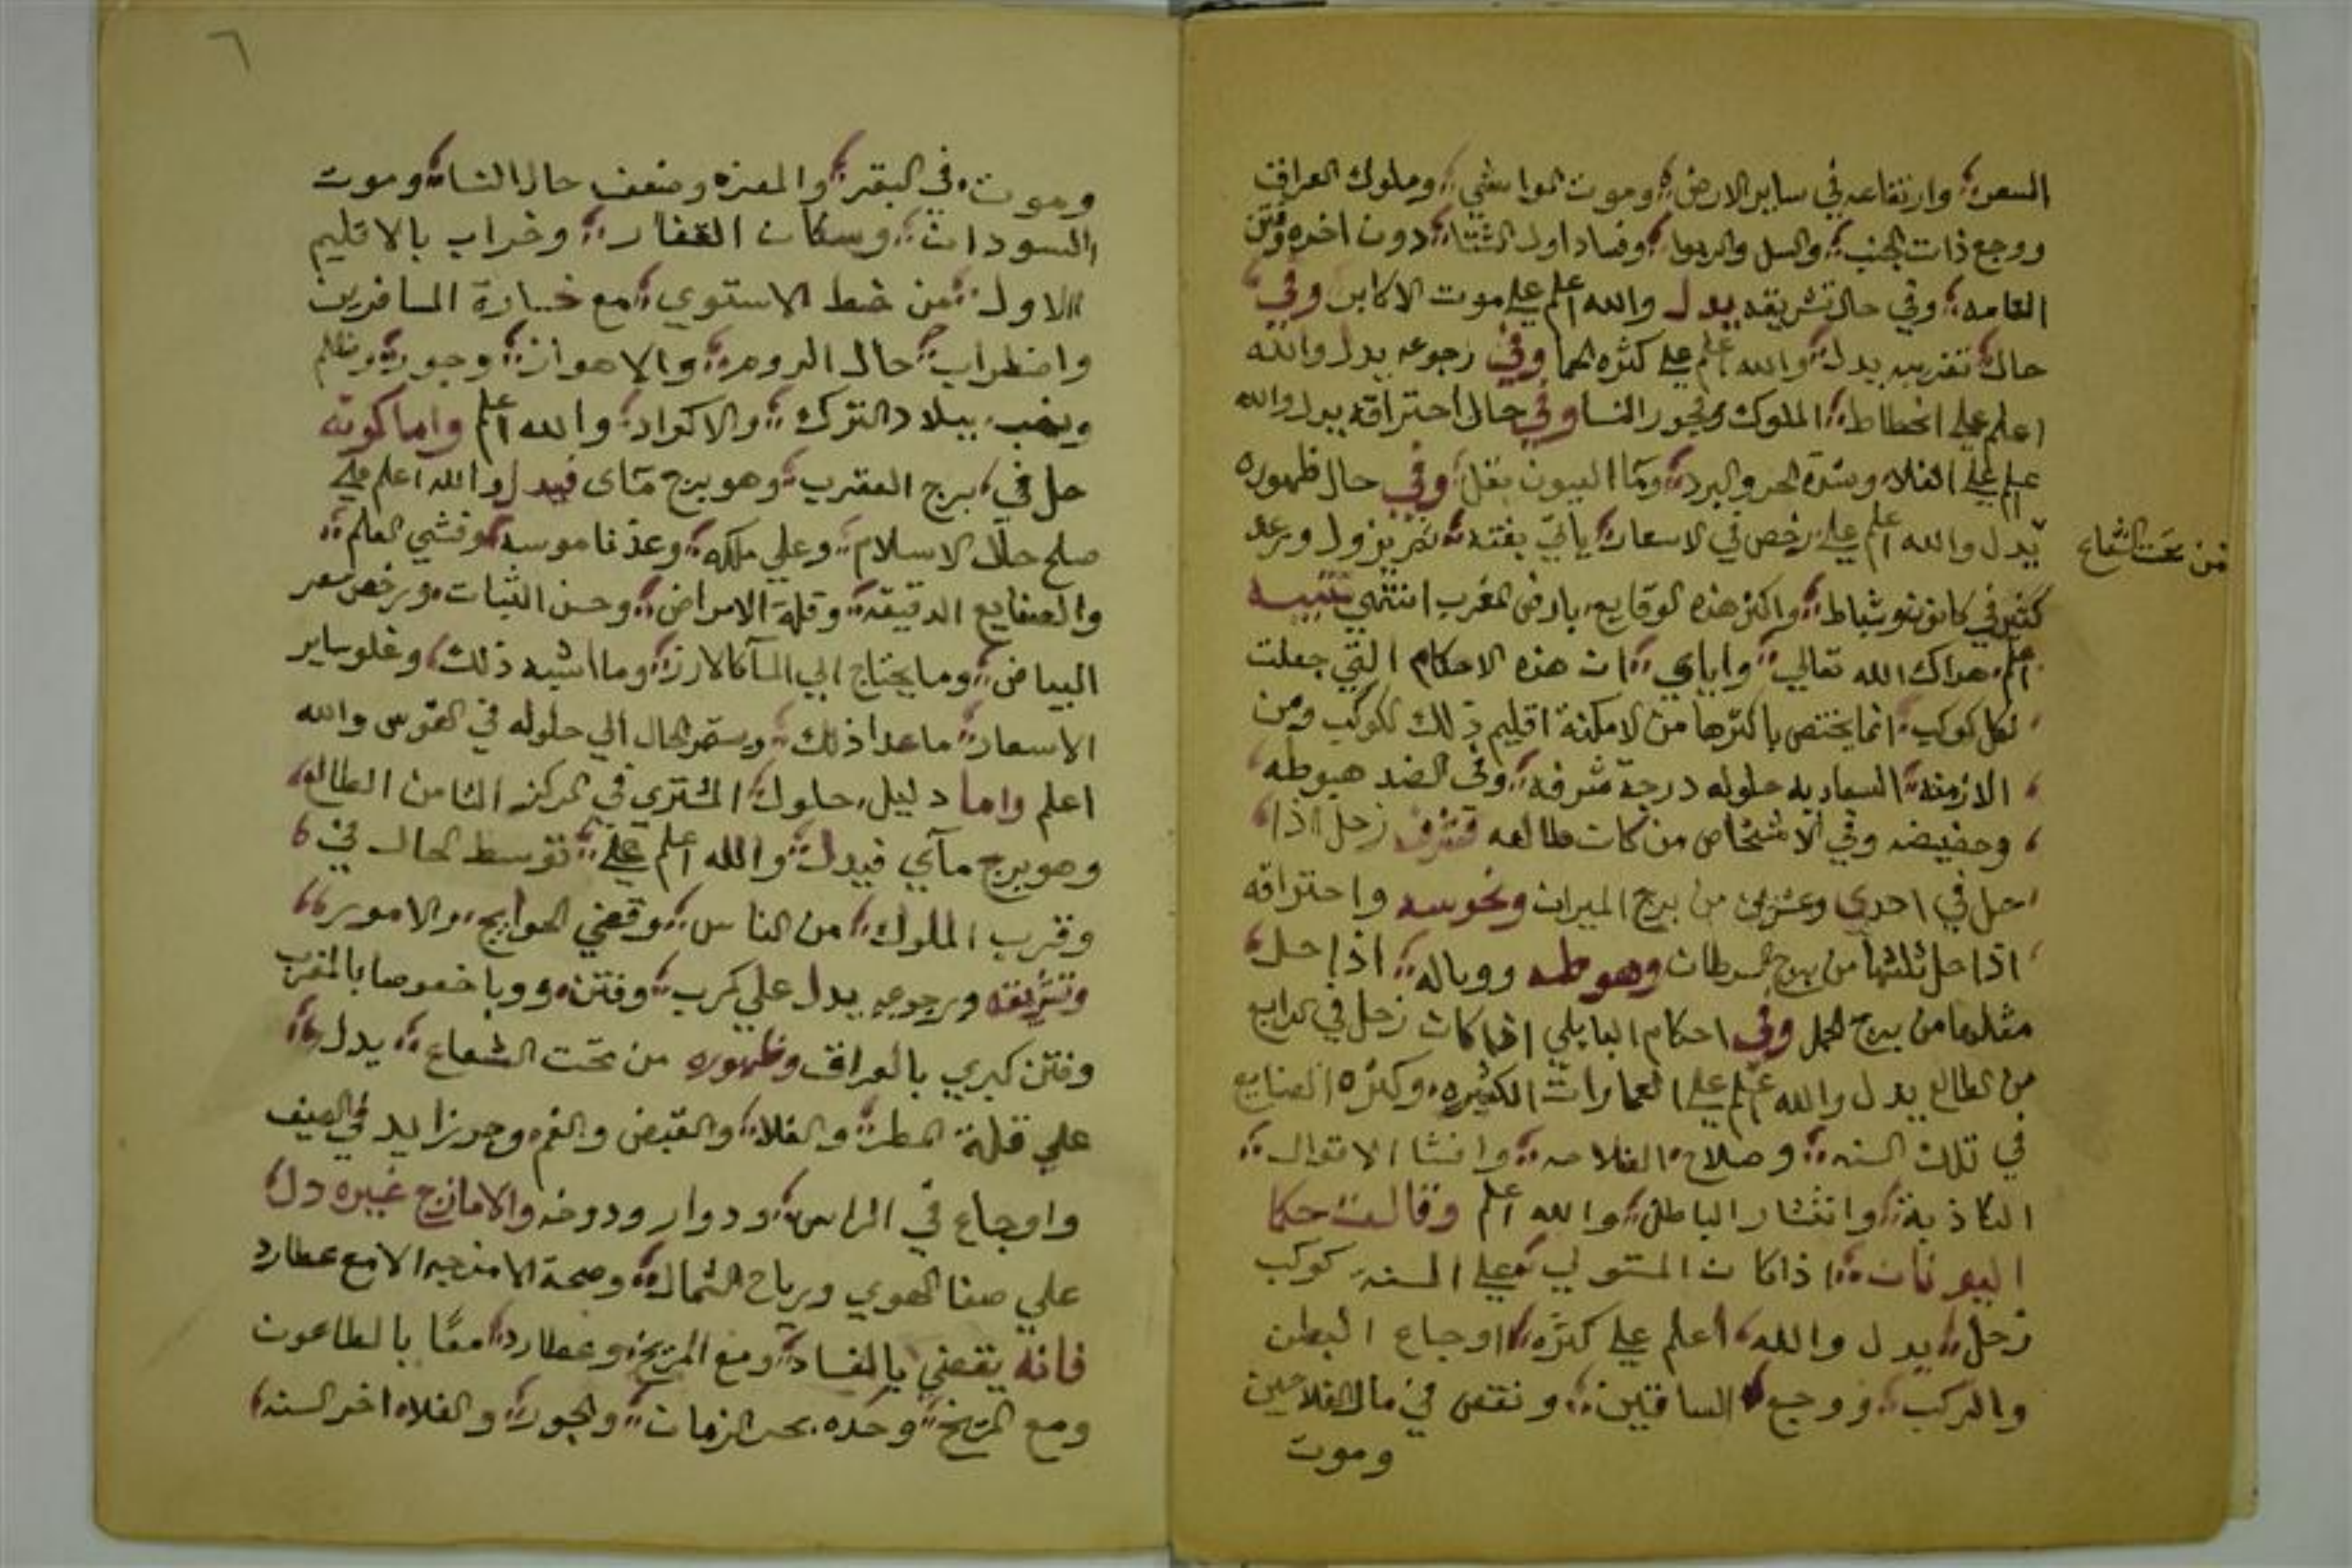 السعر وارتفاعه في ساير الارض وموت المواشي وملوك العراق
ووجع ذات الجنب والسل والربو وفساد اول الشتا دون اخره وفتن
العامه وفي حال تشريقه يدل والله اعلم علي موت الاكابر وفي
حال تغريبه يدل والله اعلم علي كثره الحما وفي رجوعه يدل والله
اعلم علي انحطاط الملوك وفجور النسا وفي حال احتراقه يدل والله
اعلم علي الغلاء وشدة الحر والبرد وما العيون يقل وفي حال ظهوره
من تحت الشعاع
يدل والله اعلم علي رخص في الاسعار ياتي بغته ثم يزول ورعد
كثير في كانون وشباط واكثر هذه الوقايع بارض المغرب انتهي تنبيه
اعلم هداك الله تعالي واياي ان هذه الاحكام التي جعلت
لكل كوكب انما يختص باكثرها من الامكنة اقليم ذلك الكوكب ومن
الازمنه السعاديه حلوله درجة شرفه وفي الضد هبوطه
وحضيضه وفي الاشخاص من كان طالعه فشرف زحل اذا
حل في احدي وعشرين من برج الميزان ونحوسه واحتراقه
اذا حل ثلثها من برج السرطان وهبوطه ووباله اذا حل
مثلها من برج الحمل وفي احكام البابلي اذا كان زحل في الرابع
من الطالع يدل والله اعلم علي العمارات الكثيره وكثره الصنايع
في تلك السنه وصلاح الفلاحه وافشا الاقوال
الكاذبة وانتشار الباطل والله اعلم وقالت حكما
اليونان اذا كان المستولي علي السنه كوكب
زحل يدل والله اعلم علي كثره اوجاع البطن
والركب ووجع الساقين ونقص في مال الفلاحين
وموت
٦
وموت في البقر والمعزه وضعف حال النسا وموت
السودان وسكان القفار وخراب بالاقليم
الاول من خط الاستوي مع خسارة المسافرين
واضطراب حال الروم والاهواز وجور وظلم
ونهب ببلاد الترك والاكراد والله اعلم واما كونه
حل في برج العقرب وهو برج مآى فيدل والله اعلم علي
صلح حال الاسلام وعلي ملكه وعز ناموسه وفشي العلم
والصنايع الدقيقه وقلة الامراض وحسن النبات ورخص سعر
البياض وما يحتاج الي المآ كالارز وما اشبه ذلك وغلو ساير
الاسعار ما عدا ذلك ويستمر الحال الي حلوله في القوس والله
اعلم واما دليل حلول المشتري في المركز الثامن الطالع
وهو برج مآي فيدل والله اعلم علي توسط الحال في
وقرب الملوك من الناس وقضي الحوايج والامور
وتشريقه ورجوعه يدل علي كرب وفتن ووبا خصوصا بالمغرب
وفتن كبري بالعراق وظهوره من تحت الشعاع يدل
علي قلة المطر والغلا والقبض والغم وحر زايد في الصيف
واوجاع في الراس ودوار ودوخه والامازج غيره دل
علي صفا الهوي ورياح الشمال وصحة الامزجه الا مع عطارد
فانه يقضي بالفساد ومع المريخ وعطارد معًا بالطاعون
ومع المريخ وحده بحر الزمان والجور والغلا اخر السنه